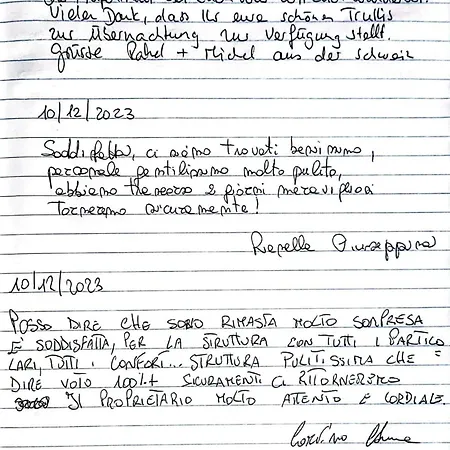 Vielen Dank, dass Ihr eure schönen Trullis
zur Übernachtung zur Verfügung stellt.
Grüsse Rahel + Michel aus der Schweiz
10/12/2023
Soddisfatta, ci siamo trovati benissimo,
personale gentilissimo molto pulito,
abbiamo trascorso 2 giorni meravigliosi
Torneremo sicuramente!
Giuseppina
10/12/2023
POSSO DIRE CHE SONO RIMASTA MOLTO SORPRESA
E SODDISFATTA, PER LA STRUTTURA CON TUTTI I PARTICO
LARI, TUTTI I CONFORT... STRUTTURA PULITISSIMA CHE =
DIRE VOTO 100%+ SICURAMENTI CI RITORNEREMO
IL PROPRIETARIO MOLTO ATTENTO E CORDIALE.